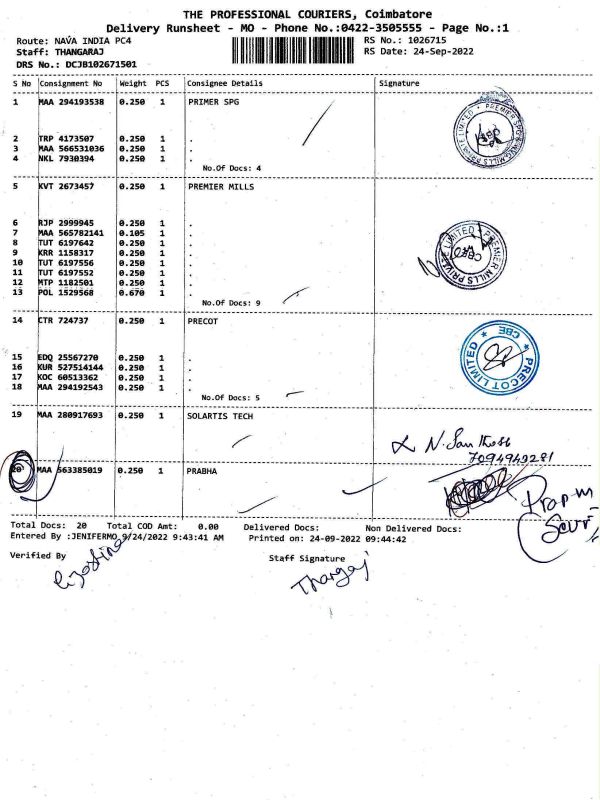 THE PROFESSIONAL COURIERS, Coimbatore
Delivery Runsheet - MO - Phone No.:0422-3505555 - Page No.:1
Route: NAVA INDIA PC4 RS No.: 1026715
Staff: THANGARAJ RS Date: 24-Sep-2022
DRS No.: DCJB102671501
S No Consignment No Weight PCS Consignee Details Signature
1 MAA 294193538 0.250 1 PRIMER SPG
2 TRP 4173507 0.250 1 .
3 MAA 566531036 0.250 1 .
4 NKL 7930394 0.250 1 .
No.Of Docs: 4
5 KVT 2673457 0.250 1 PREMIER MILLS
6 RJP 2999945 0.250 1 .
7 MAA 565782141 0.105 1 .
8 TUT 6197642 0.250 1 .
9 KRR 1158317 0.250 1 .
10 TUT 6197556 0.250 1 .
11 TUT 6197552 0.250 1 .
12 MTP 1182501 0.250 1 .
13 POL 1529568 0.670 1 .
No.Of Docs: 9
PREMIER MILLS PRIVATE LIMITED
14 CTR 724737 0.250 1 PRECOT
15 EDQ 25567270 0.250 1 .
16 KUR 527514144 0.250 1 .
17 KOC 60513362 0.250 1 .
18 MAA 294192543 0.250 1 .
No.Of Docs: 5
PRECOT LIMITED CBE
19 MAA 280917693 0.250 1 SOLARTIS TECH
N. Santhosh
7094949281
20 MAA 563385019 0.250 1 PRABHA
Total Docs: 20 Total COD Amt: 0.00 Delivered Docs: Non Delivered Docs:
Entered By :JENIFERMO 9/24/2022 9:43:41 AM Printed on: 24-09-2022 09:44:42
Verified By Staff Signature
Thangaraj